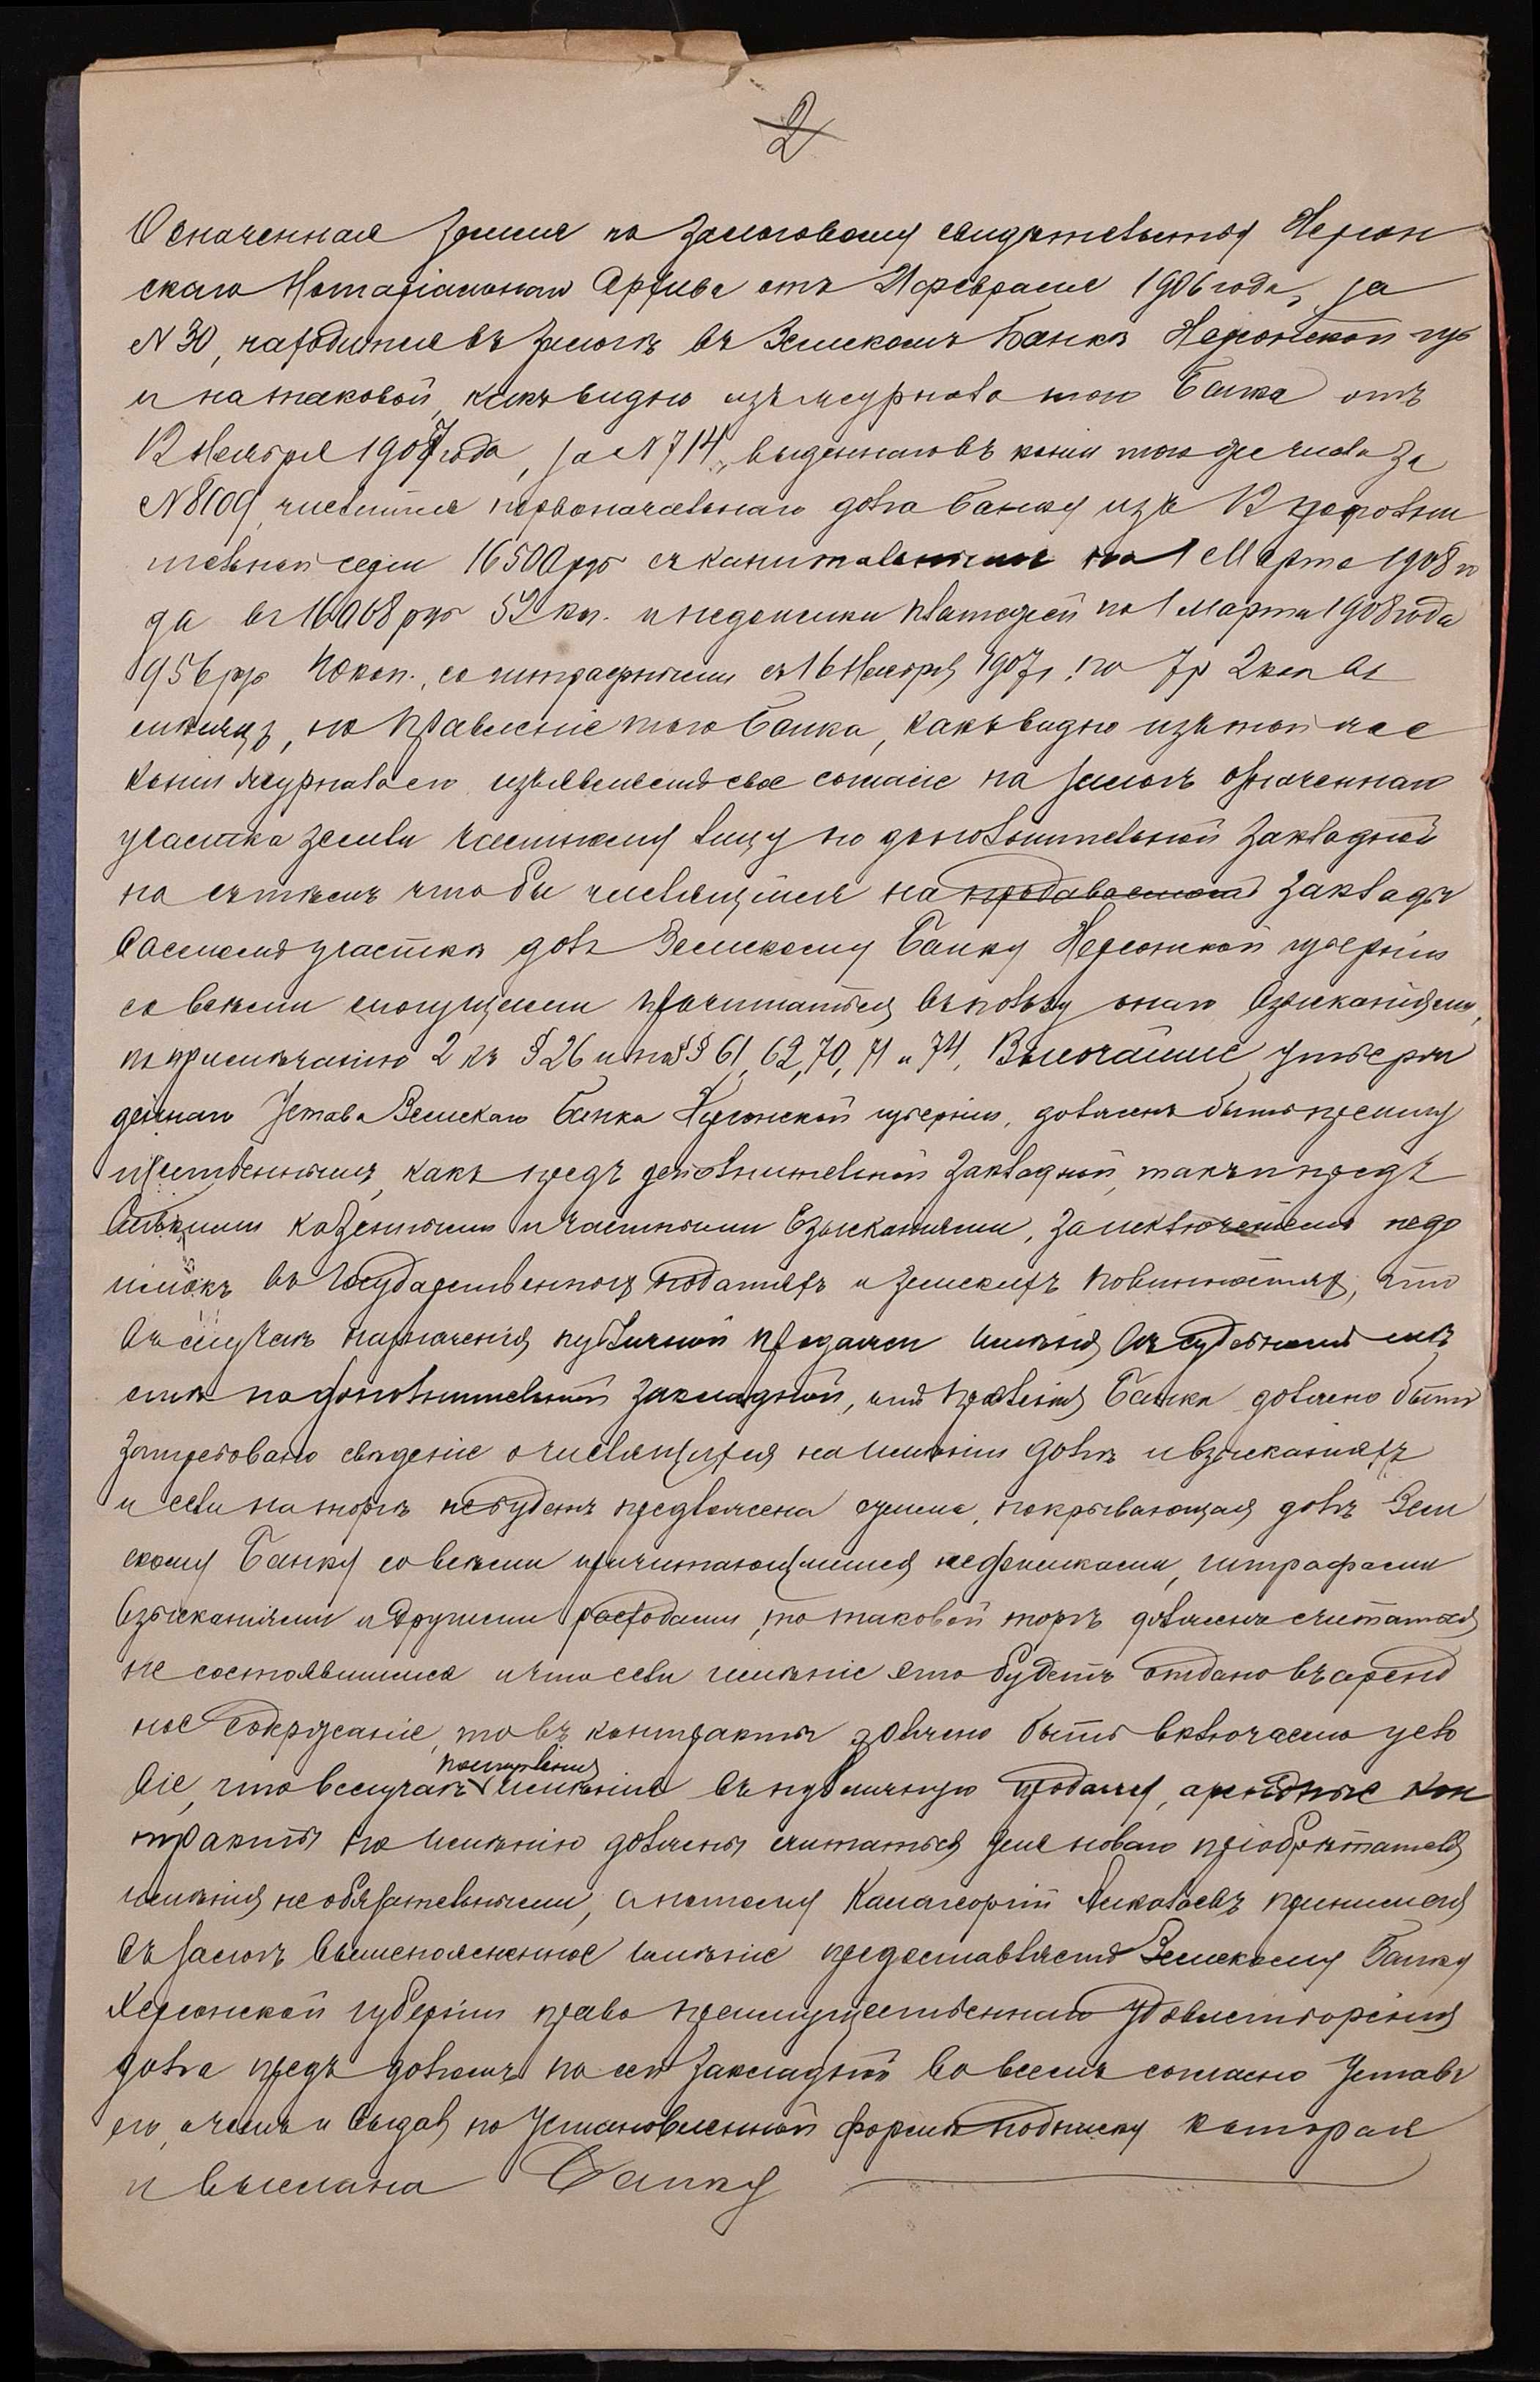 2
Означенная земля по залоговому свидѣтельству Херсон
скаго Нотаріальнаго Архива отъ февраля 1906 года, за
N 30, находится въ залогѣ въ Земскомъ Банкѣ Херсонской губ
и на таковой, какъ видно изъ журнала того Банка отъ
12 Ноября 1907 года, за N 714, выданнаго въ копіи того же числа за
N 8109, числится первоначальнаго долга Банку изъ 12 дополни
тельной серіи 16500 руб съ капитальнымъ на 1 Марта 1908 го
да въ 16068 руб 52 коп. и недоимки платежей по 1 Марта 1908 года
956 руб коп., со штрафными съ 16 Ноября 1907 г. по 7 р 2 коп въ
мѣсяцъ, но Правленіе того Банка, какъ видно изъ той же
копіи журнала его изъявляетъ свое согласіе на залогъ означеннаго
участка земли частному лицу по дополнительной закладной
но съ тѣмъ что бы числящійся на продаваемомъ закладъ
ваемомъ участкѣ долгъ Земскому Банку Херсонской губерніи
со всѣми могущими причитаться въ пользу онаго взысканіями,
по примѣчанію 2 къ § 26 и по §§ 61, 62, 70, 71 и 74, Высочайше утверж
деннаго Устава Земскаго Банка Херсонской губерніи, долженъ быть преиму
щественнымъ, какъ предъ дополнительной закладной, такъ и предъ
всѣкими казенными и частными взысканіями, за исключеніемъ недо
имокъ въ Государственныхъ податяхъ и земскихъ повинностяхъ, что
въ случаѣ назначенія публичной продажи имѣнія въ судебномъ мѣ
стѣ по дополнительной закладной, отъ Правленія Банка должно быть
затребовано свѣденіе о числящихся на имѣніи долгѣ и взысканіяхъ
и если на торгѣ не будетъ предложена сумма, покрывающая долгъ Зем
скому Банку со всѣми причитающимися недоимками, штрафами
взысканіями и другими расходами, то таковой торгъ долженъ считаться
не состоявшимся и что если имѣніе это будетъ отдано въ аренд
ное содержаніе, то въ контракты должно быть включаемо усло
віе, что въ случаѣ поступленія имѣнія въ публичную продажу, арендные кон
тракты по имѣнію должны считаться для новаго пріобрѣтателя
имѣнія не обязательными, а потому Николаевъ принимая
въ залогъ вышепоясненное имѣніе предоставляетъ Земскому Банку
Херсонской губерніи право преимущественнаго удовлетворенія
долга предъ долгомъ по сей закладной во всемъ согласно Устава
его, о чемъ и выдавъ по установленной формѣ подписку которая
и выслана Банку